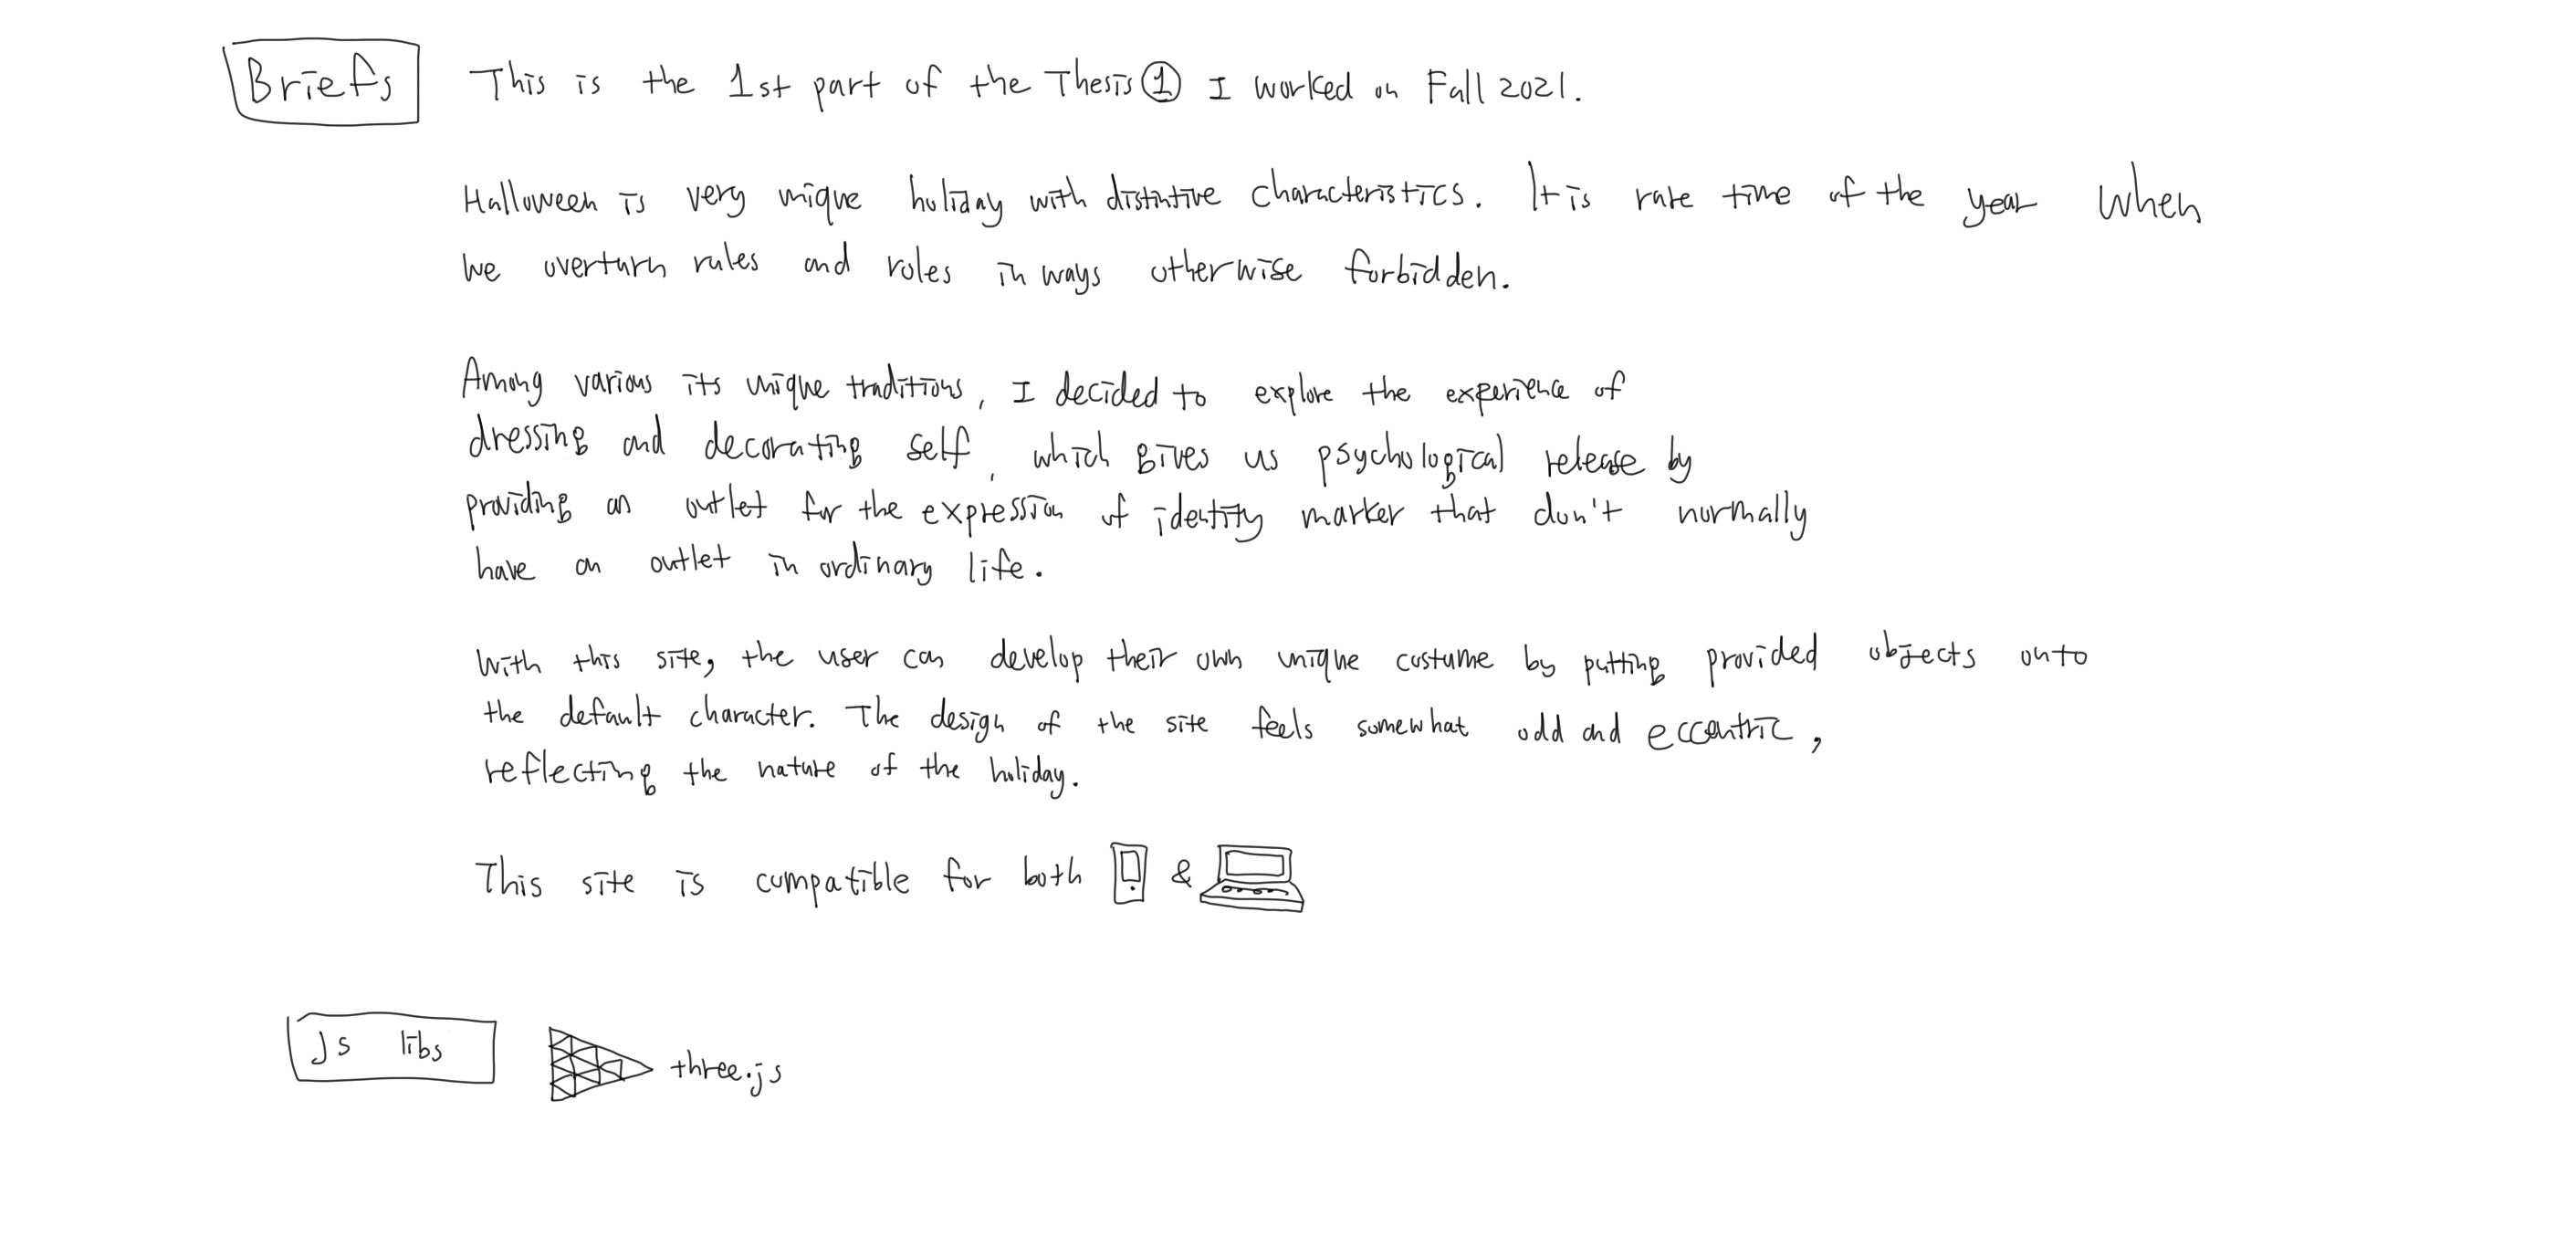 Briefs This is the 1st part of the Thesis ① I worked on Fall 2021.
Halloween is very unique holiday with distintive characteristics. It is rate time of the year when
we overturn rules and roles in ways otherwise forbidden.
Among various its unique traditions, I decided to explore the experience of
dressing and decorating self, which gives us psychological release by
providing an outlet for the expression of identity marker that don't normally
have an outlet in ordinary life.
With this site, the user can develop their own unique costume by putting provided objects onto
the default character. The design of the site feels somewhat odd and eccentric,
reflecting the nature of the holiday.
This site is compatible for both &
js libs three.js